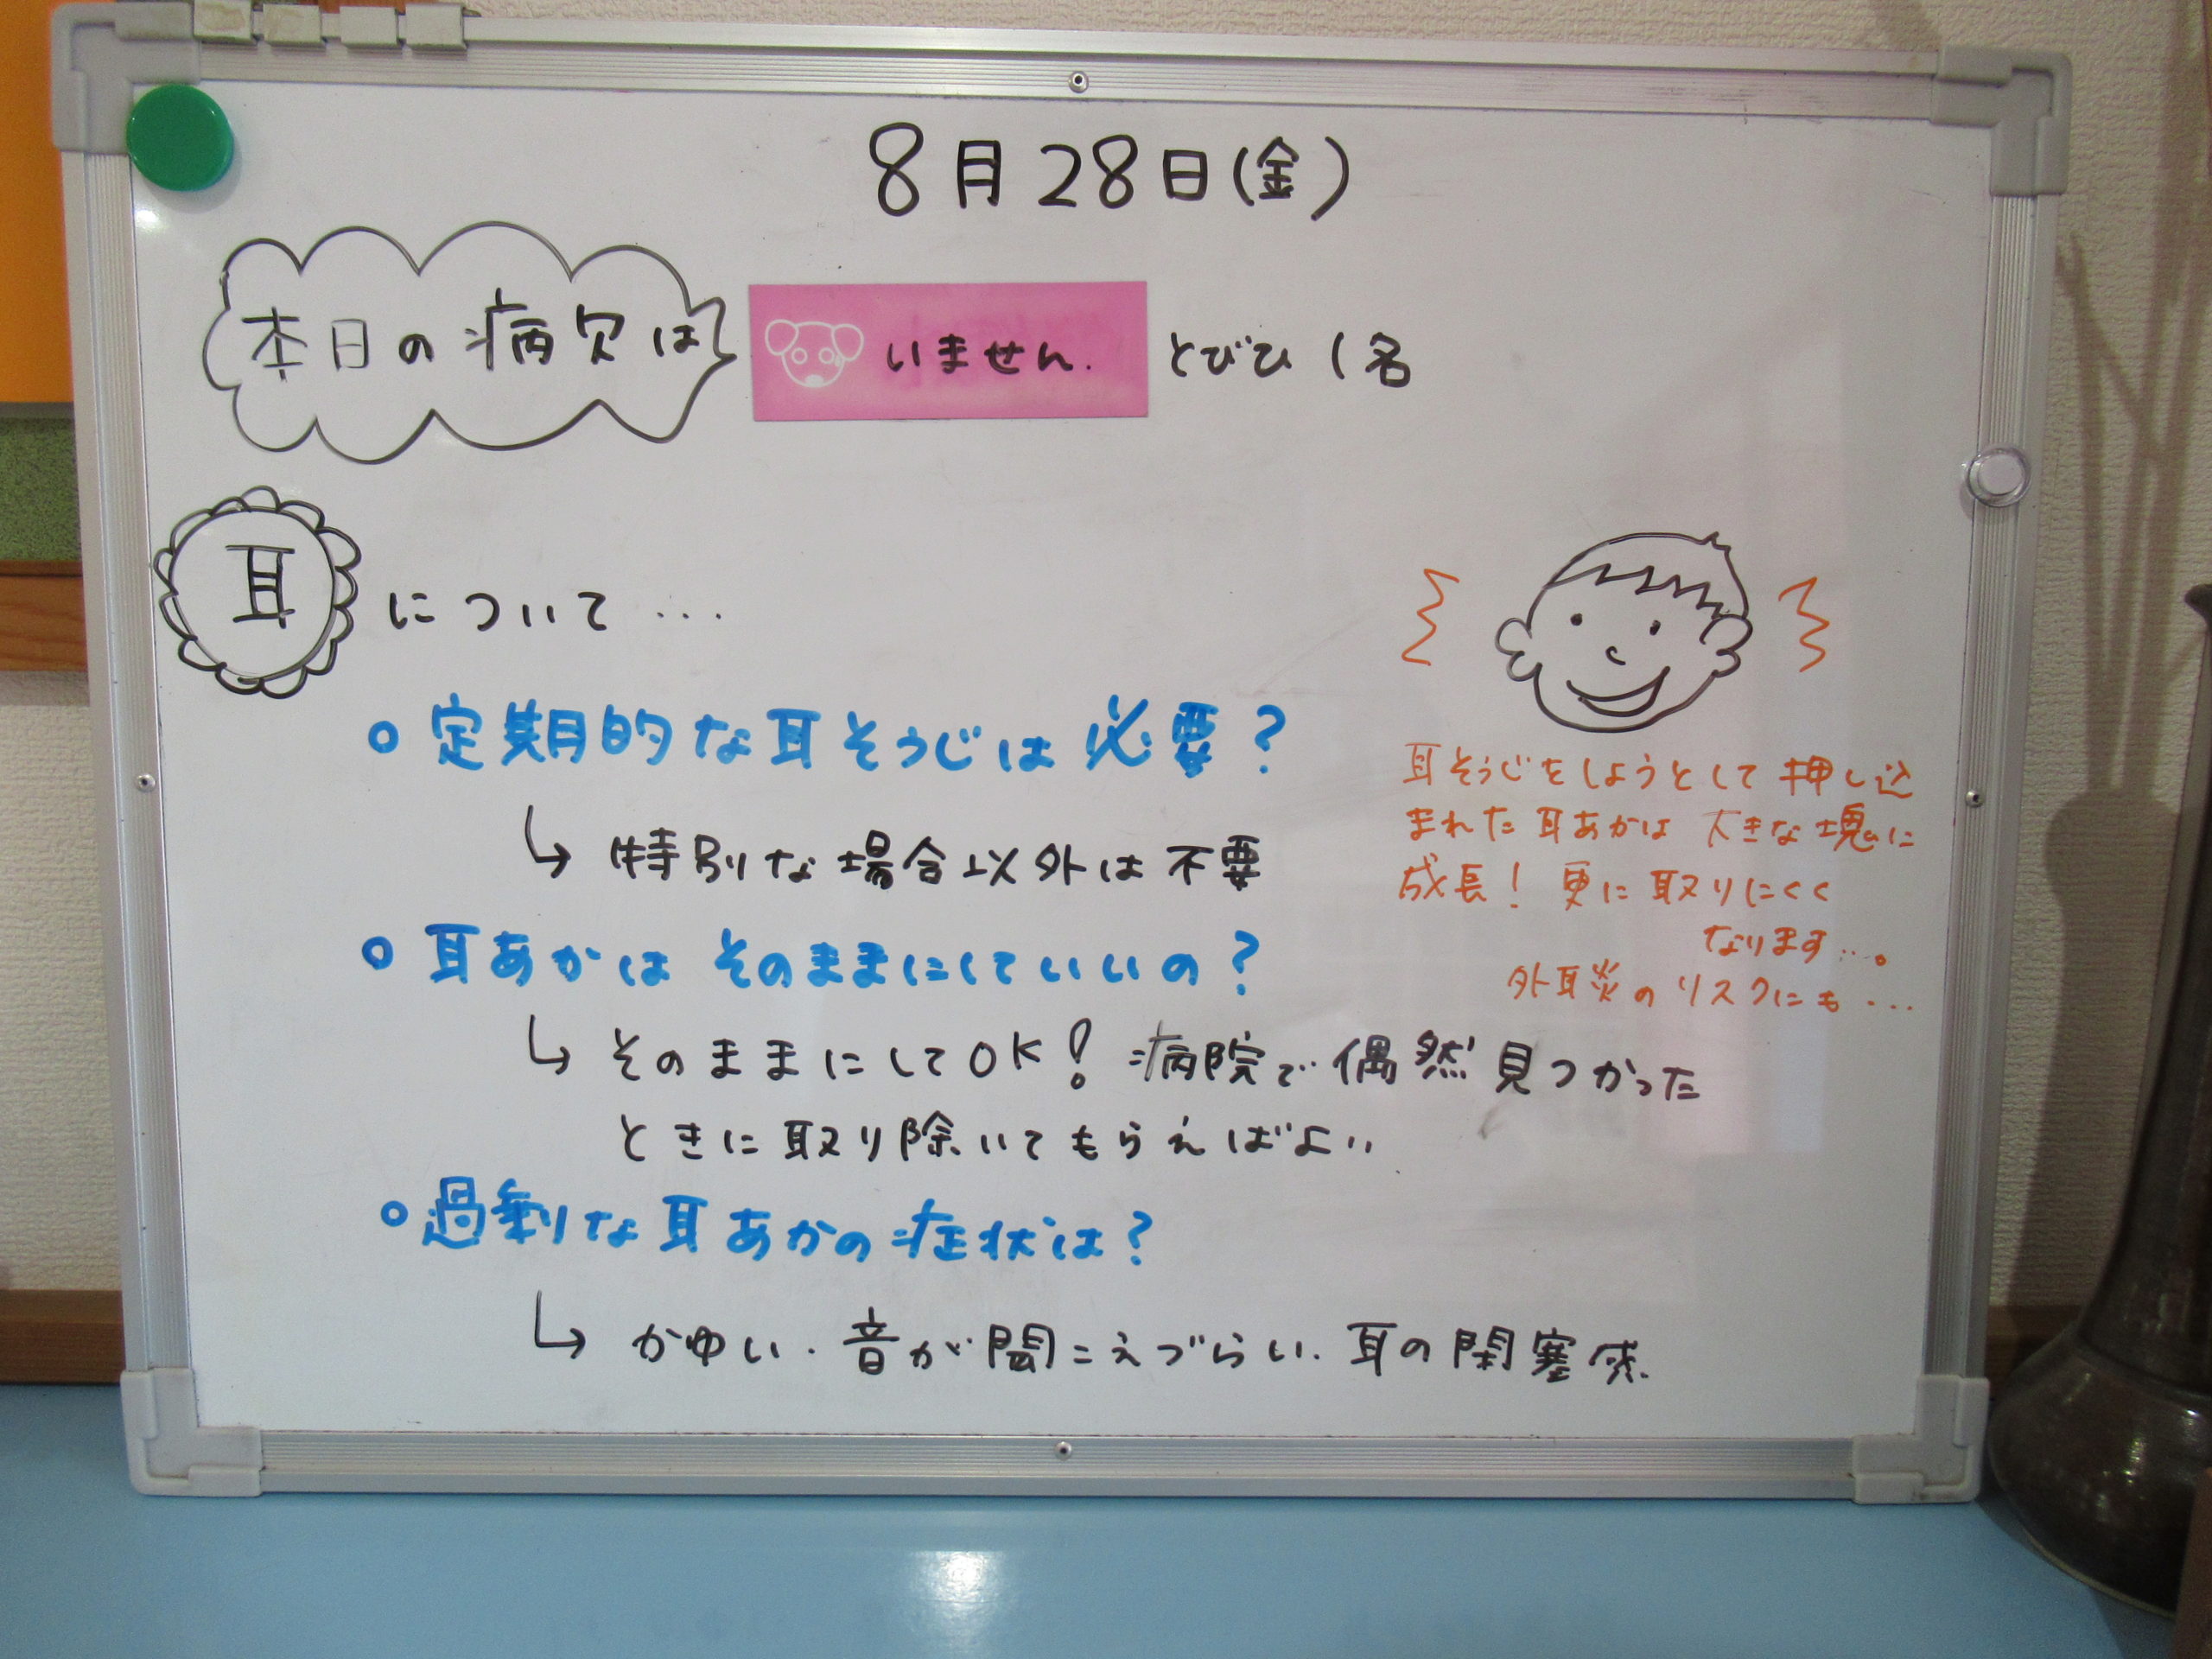 8月28日(金)
本日の病欠は いません. とびひ 1名
耳 について …
○ 定期的な耳そうじは必要?
↳ 特別な場合以外は不要
○ 耳あかは そのままにしていいの?
↳ そのままにしてOK! 病院で偶然見つかった
ときに取り除いてもらえばよい
○ 過剰な耳あかの症状は?
↳ かゆい・音が聞こえづらい・耳の閉塞感
耳そうじをしようとして押し込
まれた耳あかは 大きな塊に
成長! 更に取りにくく
なります…。
外耳炎のリスクにも…